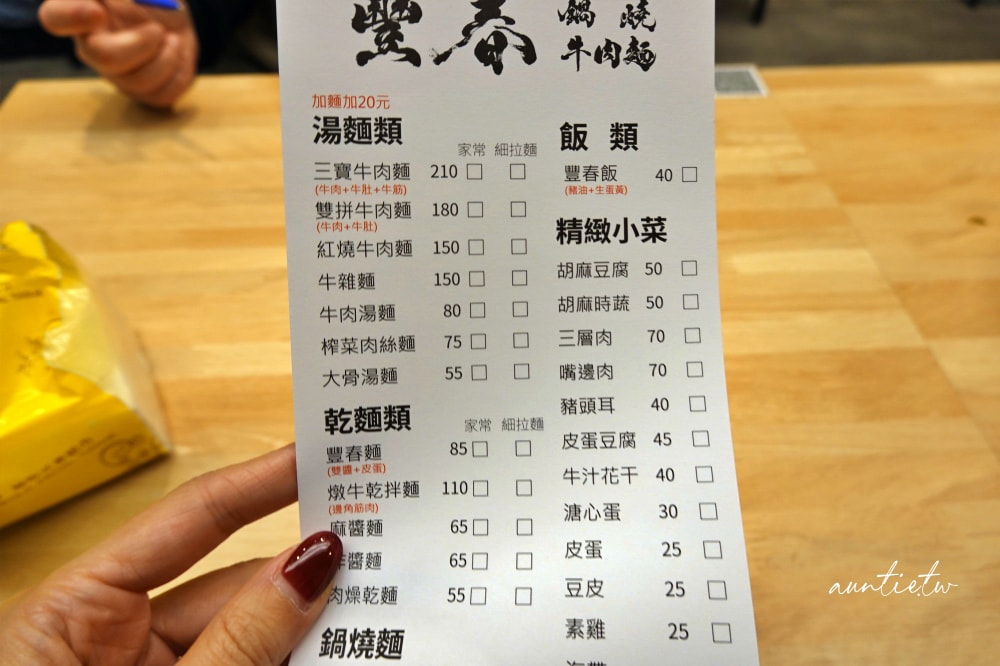 豐春 鍋燒
牛肉麵
加麵加20元
湯麵類
家常 細拉麵
三寶牛肉麵 210
(牛肉+牛肚+牛筋)
雙拼牛肉麵 180
(牛肉+牛肚)
紅燒牛肉麵 150
牛雜麵 150
牛肉湯麵 80
榨菜肉絲麵 75
大骨湯麵 55
乾麵類
家常 細拉麵
豐春麵 85
(雙醬+皮蛋)
燉牛乾拌麵 110
(邊角筋肉)
麻醬麵 65
醬麵 65
肉燥乾麵 55
鍋燒麵
飯類
豐春飯 40
(豬油+生蛋黃)
精緻小菜
胡麻豆腐 50
胡麻時蔬 50
三層肉 70
嘴邊肉 70
豬頭耳 40
皮蛋豆腐 45
牛汁花干 40
溏心蛋 30
皮蛋 25
豆皮 25
素雞 25
auntie.tw